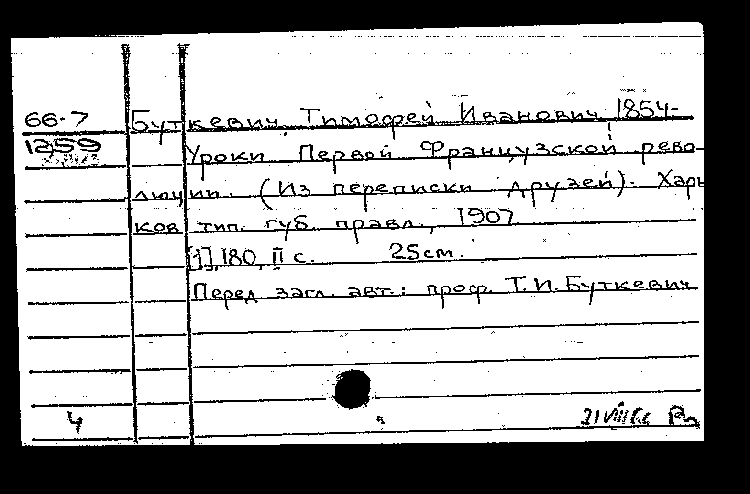 66-7 Буткевич, Тимофей Иванович, 1854-
1259 Уроки Первой Французской рево-
люции. (Из переписки друзей). Харь-
ков, тип. губ. правл., 1907
[1], 180, II с. 25см.
Перед загл. авт.: проф. Т.И. Буткевич
4